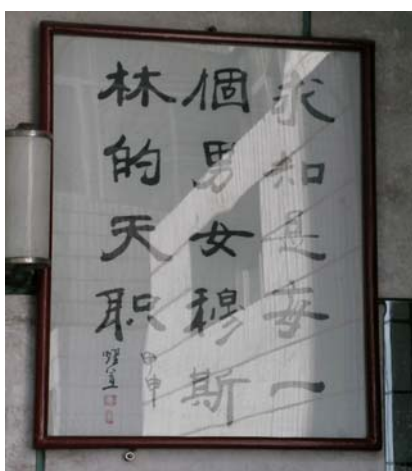 求知是每一
個男女穆斯
林的天职
甲申